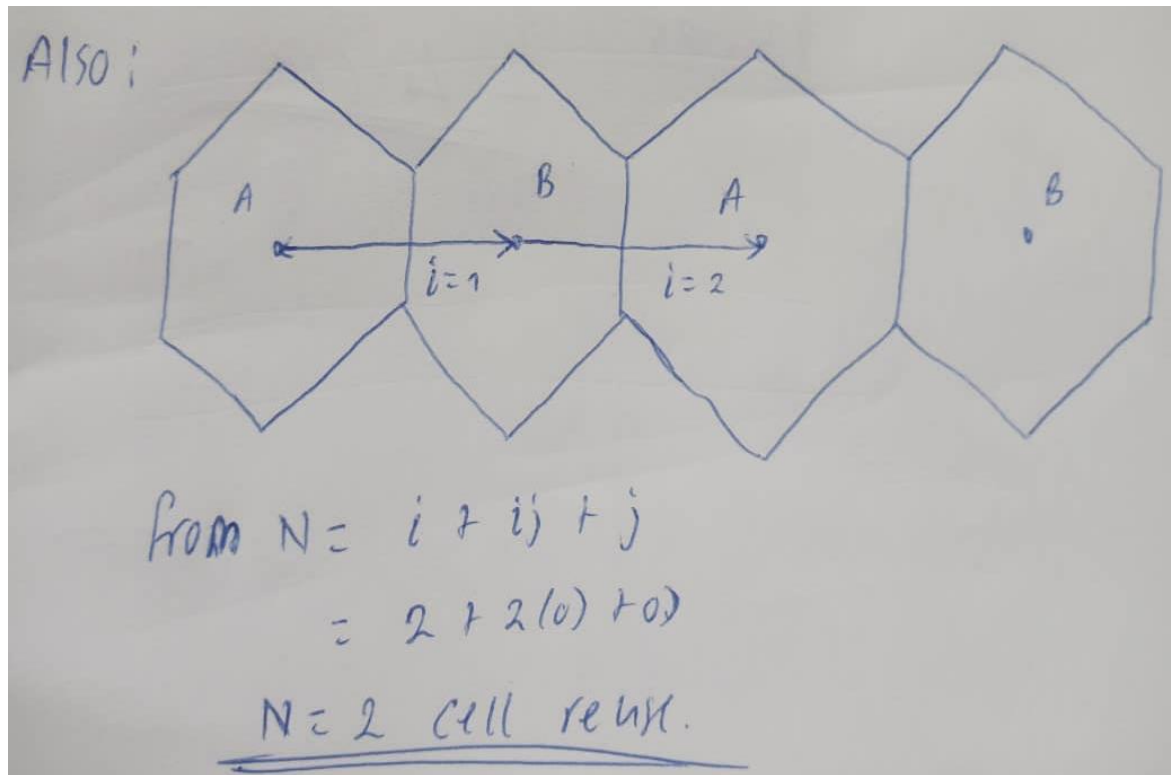 Also:
A B A B
i=1 i=2
from N = i + ij + j
= 2 + 2(0) + 0)
N = 2 cell reuse.